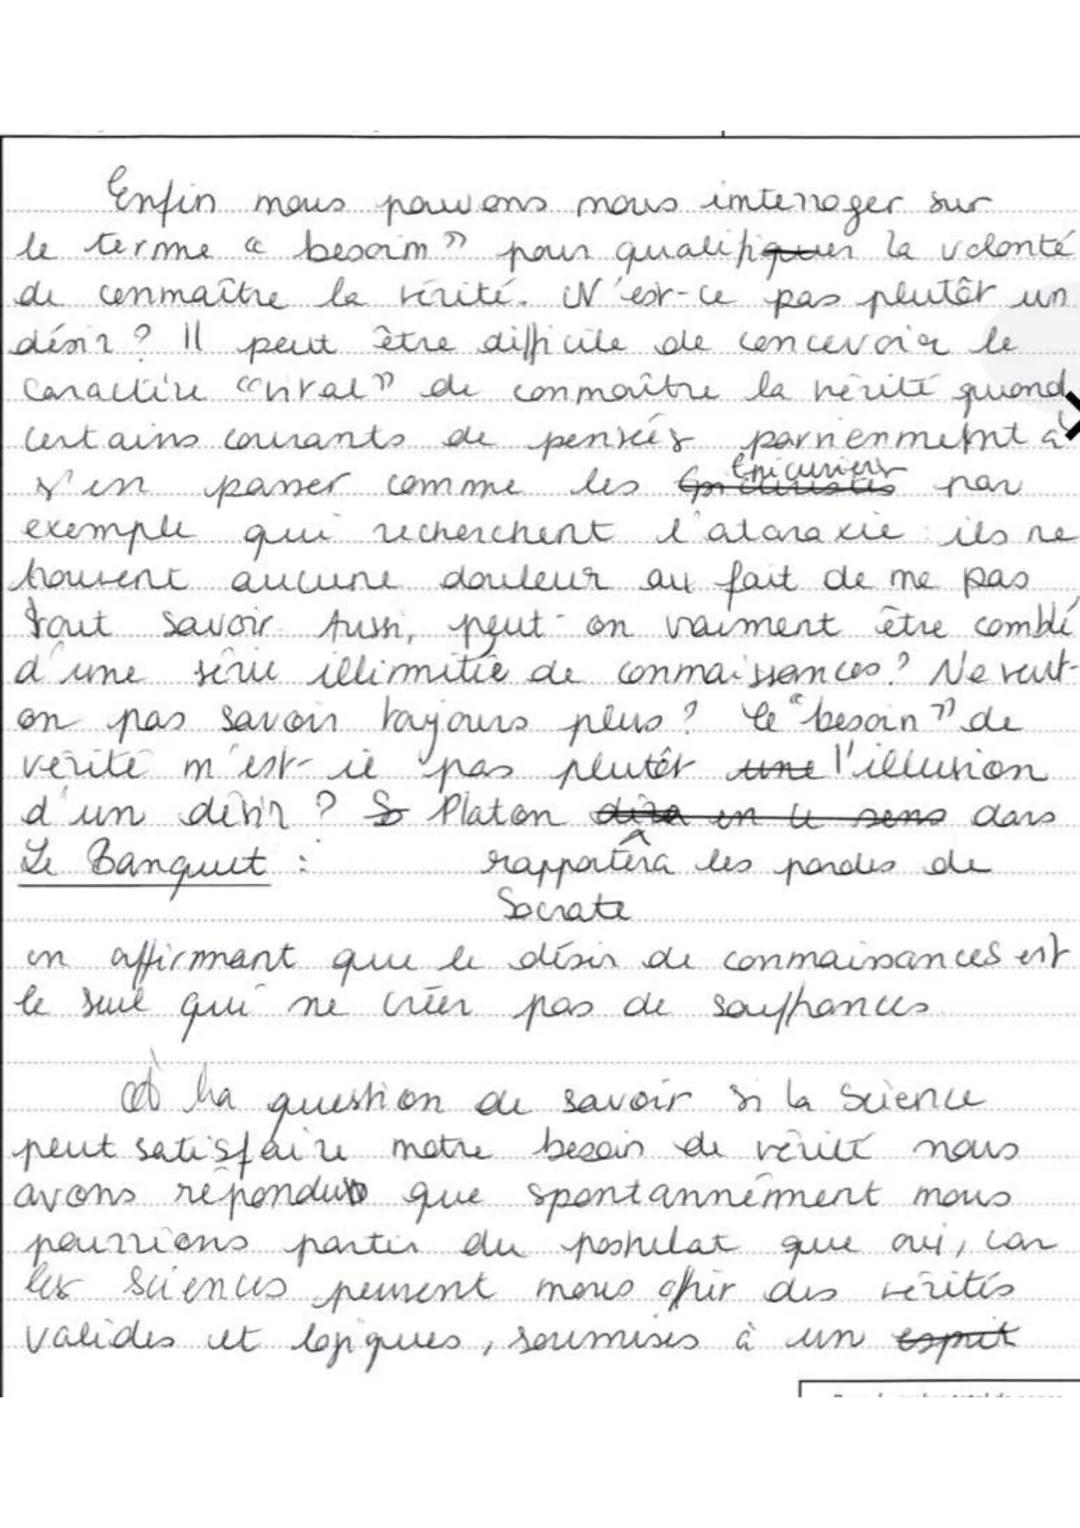 Enfin nous pouvons nous interroger sur
le terme « besoin » pour qualifier la volonté
de connaître la vérité. N'est-ce pas plutôt un
désir ? Il peut être difficile de concevoir le
caractère "vital" de connaître la vérité quand
certains courants de pensées parviennent à
s'en passer comme les Epicuriens par
exemple qui recherchent l'ataraxie : ils ne
trouvent aucune douleur au fait de ne pas
tout savoir. Aussi, peut-on vraiment être comblé
d'une série illimitée de connaissances ? Ne veut-
on pas savoir toujours plus ? Le "besoin" de
vérité n'est-il pas plutôt l'illusion
d'un désir ? Platon dans
Le Banquet : rapportera les paroles de
Socrate
en affirmant que le désir de connaissances est
le seul qui ne créer pas de souffrances.
A la question de savoir si la Science
peut satisfaire notre besoin de vérité nous
avons répondu que spontannément nous
pourrions partir du postulat que oui, car
les sciences peuvent nous offrir des vérités
valides et logiques, soumises à un